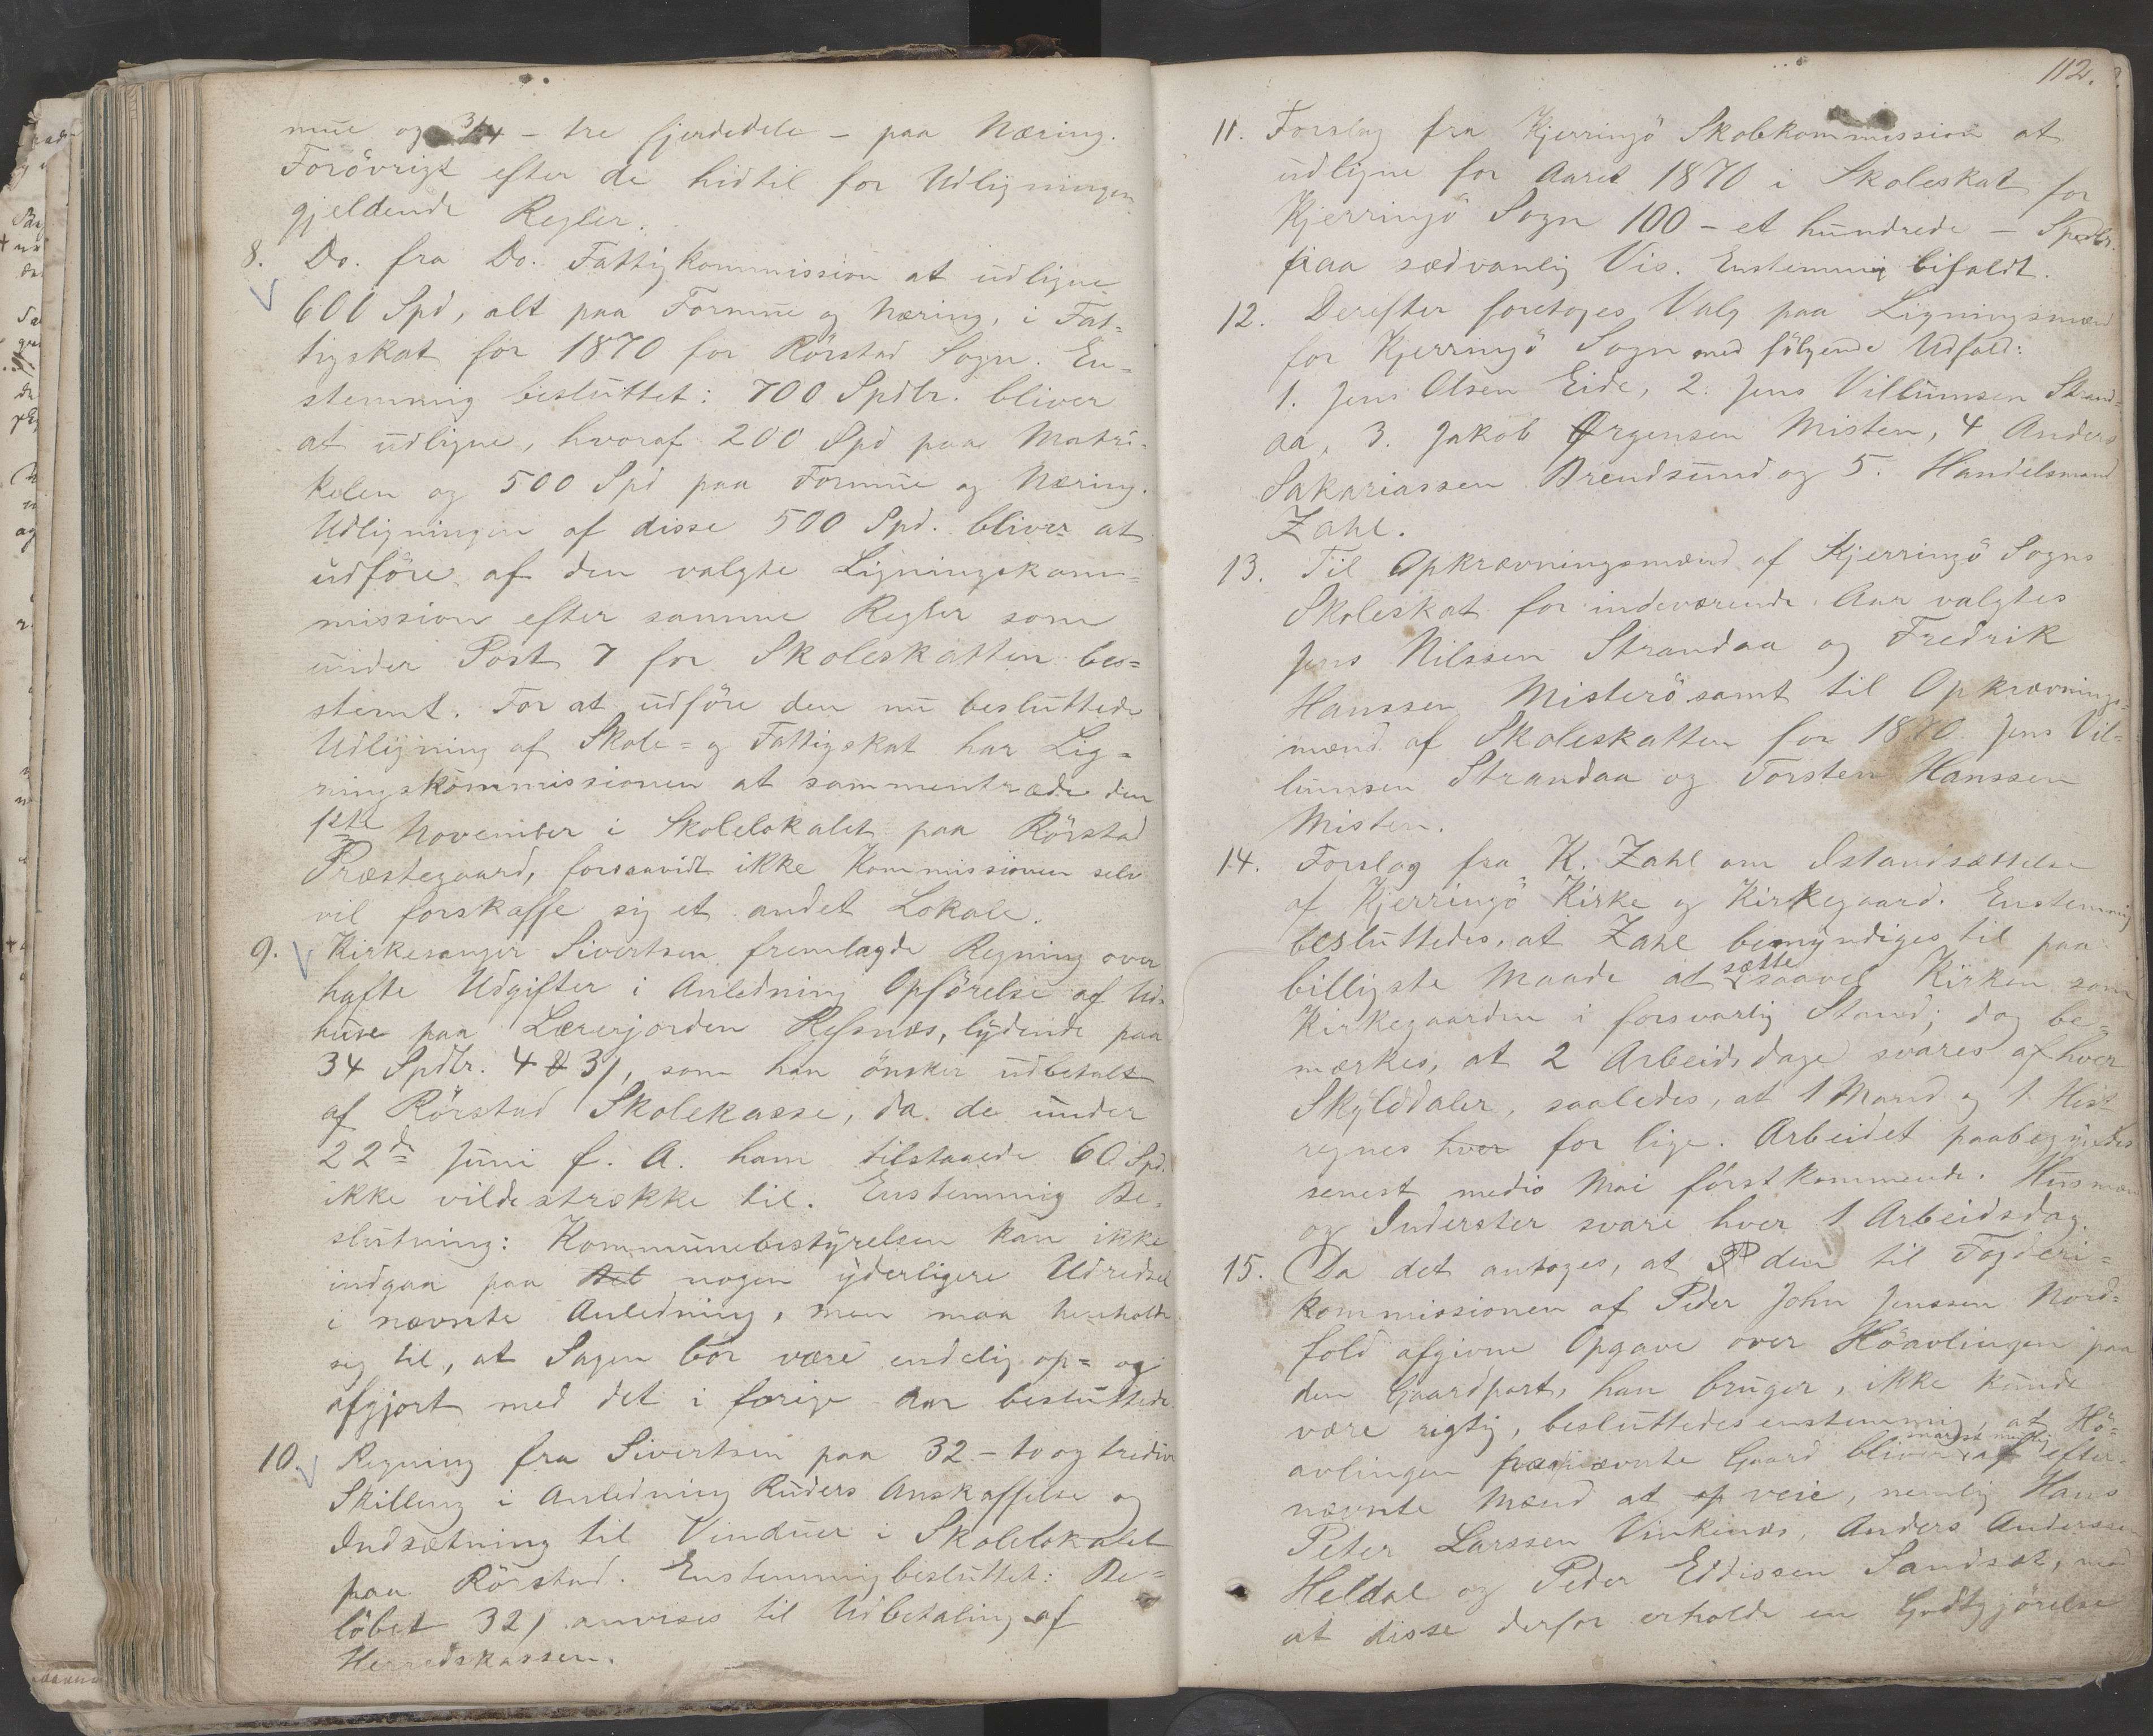 mue og 3/4 - tre fjerdedele - paa Næring.
Forövrigt efter de hidtil for Udligningen
gjeldende Regler.
8. Do. fra Do. Fattigkommission at udligne
600 Spd, alt paa Formue og Næring, i Fat-
tigskat for 1870 for Rörstad Sogn. En-
stemmig besluttet: 700 Spdlr. bliver
at udligne, hvoraf 200 Spd paa Matri-
kelen og 500 Spd paa Formue og Næring.
Udligningen af disse 500 Spd. bliver at
udföre af den valgte Ligningskom-
mission efter samme Regler som
under Post 7 for Skoleskatten bes-
temt. For at udföre den nu besluttede
Udligning af Skole- og Fattigskat har Lig-
ningskommissionen at sammentræde den
1ste November i Skolelokalet paa Rörstad
Præstegaard, forsaavidt ikke Kommissionen selv
vil forskaffe sig et andet Lokale.
9. Kirkesanger Sivertsen fremlagde Regning over
hafte Udgifter i Anledning Opförelse af Ud-
huse paa Lærerjorden Resnæs, lydende paa
34 Spdlr. 4 3/, som han önsker udbetalt
af Rörstad Skolekasse, da de under
22de Juni f. A. ham tilstaaede 60 Spd.
ikke vilde strække til. Enstemmig Be-
slutning: Kommunebestyrelsen kan ikke
indgaa paa nogen yderligere Udredsel
i nævnte Anledning, men maa henholde
sig til, at Sagen bör være endelig op- og
afgjort med det i forige Aar besluttede.
10. Regning fra Sivertsen paa 32 - to og tredive
Skilling i Anledning Ruders Anskaffelse og
Indsætning til Vinduer i Skolelokalet
paa Rörstad. Enstemmig besluttet: Be-
löbet 32/ anvises til Udbetaling af
Herredskassen.
112.
11. Forslag fra Kjerringö Skolekommission at
udligne for Aaret 1870 i Skoleskat for
Kjerringö Sogn 100 - et hundrede - Spdlr.
paa sædvanlig Vis. Enstemmig bifaldt.
12. Derefter foretoges Valg paa Ligningsmænd
for Kjerringö Sogn med fölgende Udfald:
1. Jens Olsen Eide, 2. Jens Villumsen Strand-
aa, 3. Jakob Ørgensen Misten, 4 Anders
Sakariassen Brendsund og 5. Handelsmand
Zahl.
13. Til Opkrævningsmænd af Kjerringö Sogns
Skoleskat for indeværende Aar valgtes
Jens Nilssen Strandaa og Fredrik
Hanssen Misterö samt til Opkrævnings-
mænd af Skoleskatten for 1870 Jens Vil-
lumsen Strandaa og Torsten Hanssen
Misten.
14. Forslag fra K. Zahl om Istandsættelse
af Kjerringö Kirke og Kirkegaard. Enstemmig
besluttedes, at Zahl bemyndiges til paa
billigste Maade at sætte saavel Kirken som
Kirkegaarden i forsvarlig Stand; dog be-
mærkes, at 2 Arbeidsdage svares af hver
Skylddaler, saaledes, at 1 Mand og 1 Hest
regnes hver for lige. Arbeidet paabegyndes
senest medio Mai förstkommende. Husmænd
og Inderster svare hver 1 Arbeidsdag.
15. Da det antoges, at den til Fogderi-
kommissionen af Peder John Jenssen Nord-
fold afgivne Opgave over Höavlingen paa
den Gaardpart, han bruger, ikke kunde
være rigtig, besluttedes enstemmig, at Hö-
avlingen paa nævnte Gaard bliver snarest mulig af efter-
nævnte Mænd at op veie, nemlig Hans
Peter Larssen Vinkenes, Anders Anderssen
Heldal og Peder Eddissen Sandset, med
at disse derfor erholde en Godtgjörelse